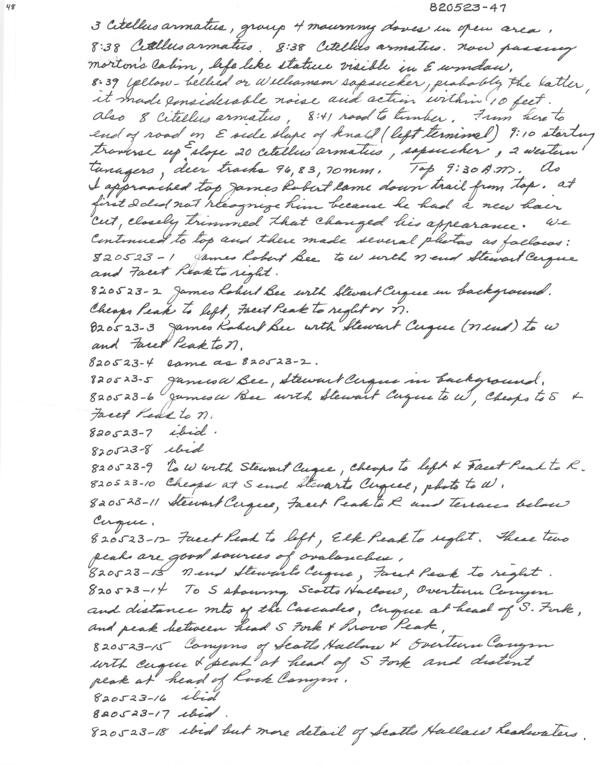 48
820523-47
3 Citellus armatus, group 4 mourning doves in open area.
8:38 Citellus armatus. 8:38 Citellus armatus. now passing
morton's Cabin, life like statue visible in E window.
8:39 Yellow-bellied or Williamson sapsucker, probably the latter,
it made considerable noise and action within 10 feet.
Also 8 Citellus armatus, 8:41 road to timber. From here to
end of road on E side slope of knoll (left terminal) 9:10 starting
traverse up E slope 20 citellus armatus, sapsucker, 2 western
tanagers, deer tracks 96, 83, 70 mm. Top 9:30 A.M. As
I approached top James Robert came down trail from top. at
first I did not recognize him because he had a new hair
cut, closely trimmed that changed his appearance. We
continued to top and there made several photos as follows:
820523-1 James Robert Bee to W with N end Stewart Cirque
and Facet Peak to right.
820523-2 James Robert Bee with Stewart Cirque in background.
Cheops Peak to left, Facet Peak to right or N.
820523-3 James Robert Bee with Stewart Cirque (N end) to W
and Facet Peak to N.
820523-4 same as 820523-2.
820523-5 James W Bee, Stewart Cirque in background.
820523-6 James W Bee with Stewart Cirque to W, Cheops to S &
Facet Peak to N.
820523-7 ibid.
820523-8 ibid
820523-9 To W with Stewart Cirque, Cheops to left & Facet Peak to R.
820523-10 Cheops at S end Stewarts Cirque, photo to W.
820523-11 Stewart Cirque, Facet Peak to R and terraces below
Cirque.
820523-12 Facet Peak to left, Elk Peak to right. These two
peaks are good sources of avalanches.
820523-13 N end Stewarts Cirque, Facet Peak to right.
820523-14 To S showing Scotts Hollow, Overturn Canyon
and distance mts of the Cascades, Cirque at head of S. Fork,
and peak between head S Fork & Provo Peak.
820523-15 Canyons of Scotts Hollow & Overturn Canyon
with cirque & peak at head of S Fork and distant
peak at head of Rock Canyon.
820523-16 ibid
820523-17 ibid.
820523-18 ibid but more detail of Scotts Hollow headwaters.